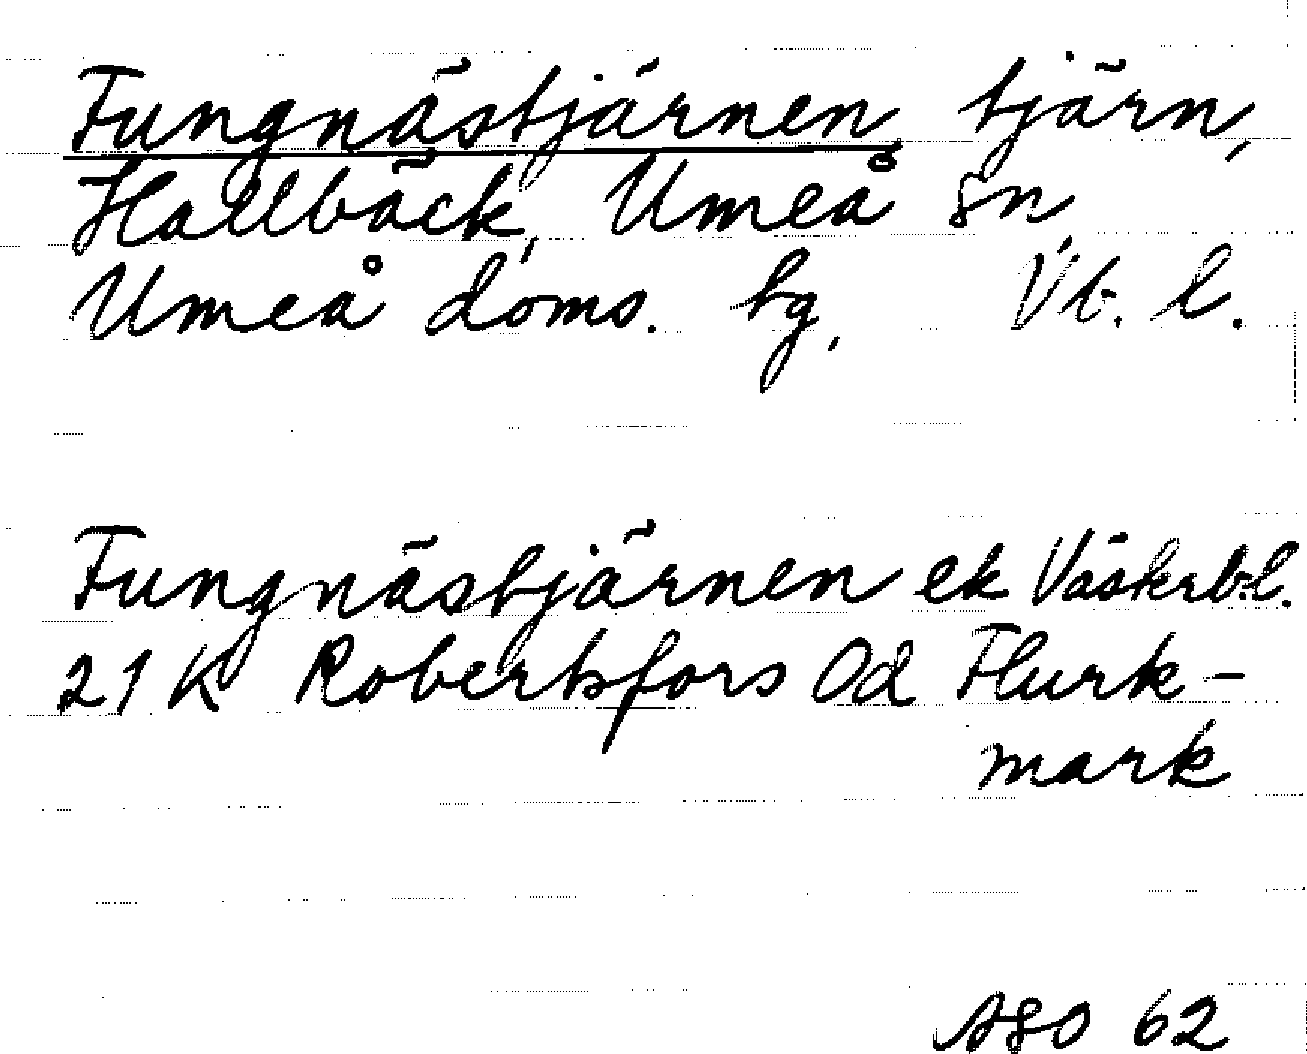 Fungnästjärnen tjärn,
Hallbäck, Umeå sn,
Umeå doms. tg, Vb. l.
Fungnästjärnen ek Västerb.l.
21 K Robertsfors 0d Flurk-
mark
ASO 62